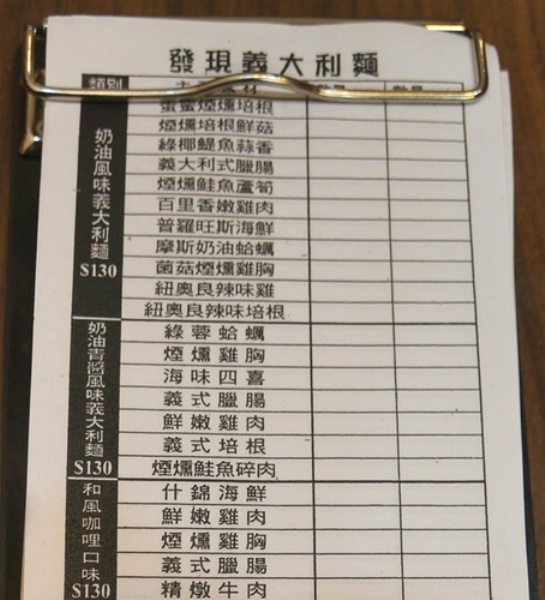 發現義大利麵
類別
奶油風味義大利麵
$130
蜜蜜煙燻培根
煙燻培根鮮菇
綠椰鯷魚蒜香
義大利式臘腸
煙燻鮭魚蘆筍
百里香嫩雞肉
普羅旺斯海鮮
摩斯奶油蛤蠣
菌菇煙燻雞胸
紐奧良辣味雞
紐奧良辣味培根
奶油青醬風味義大利麵
$130
綠蓉蛤蠣
煙燻雞胸
海味四喜
義式臘腸
鮮嫩雞肉
義式培根
煙燻鮭魚碎肉
和風咖哩口味
$130
什錦海鮮
鮮嫩雞肉
煙燻雞胸
義式臘腸
精燉牛肉